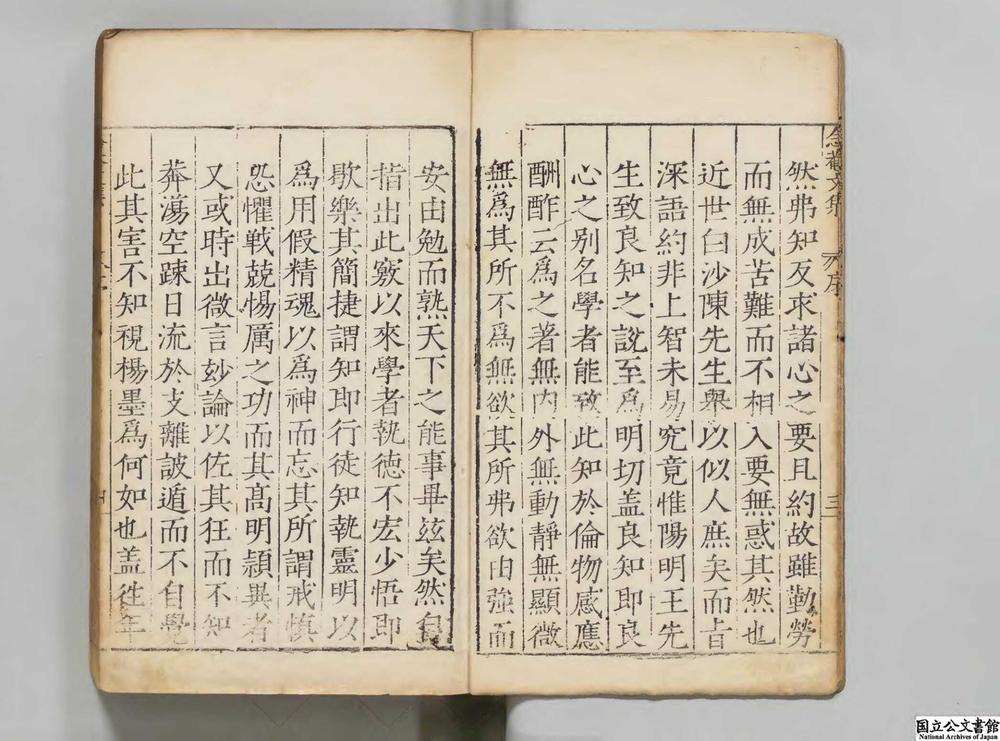 念菴文集 序 三
然弗知反求諸心之要且約故雖勤勞
而無成苦難而不相入要無惑其然也
近世白沙陳先生舉以似人庶矣而旨
深語約非上智未易究竟惟陽明王先
生致良知之說至爲明切盖良知即良
心之別名學者能致此知於倫物感應
酬酢云爲之著無內外無動靜無顯微
無爲其所不爲無欲其所弗欲由強而
安由勉而熟天下之能事畢玆矣然自
指出此竅以來學者執徳不宏少悟即
歇樂其簡捷謂知即行徒知執靈明以
爲用假精魂以爲神而忘其所謂戒慎
恐懼戰兢惕厲之功而其高明頴異者
又或時出微言玅論以佐其狂而不知
莽蕩空踈日流於支離詖遁而不自覺
此其害不知視楊墨爲何如也盖徃年
国立公文書館
National Archives of Japan